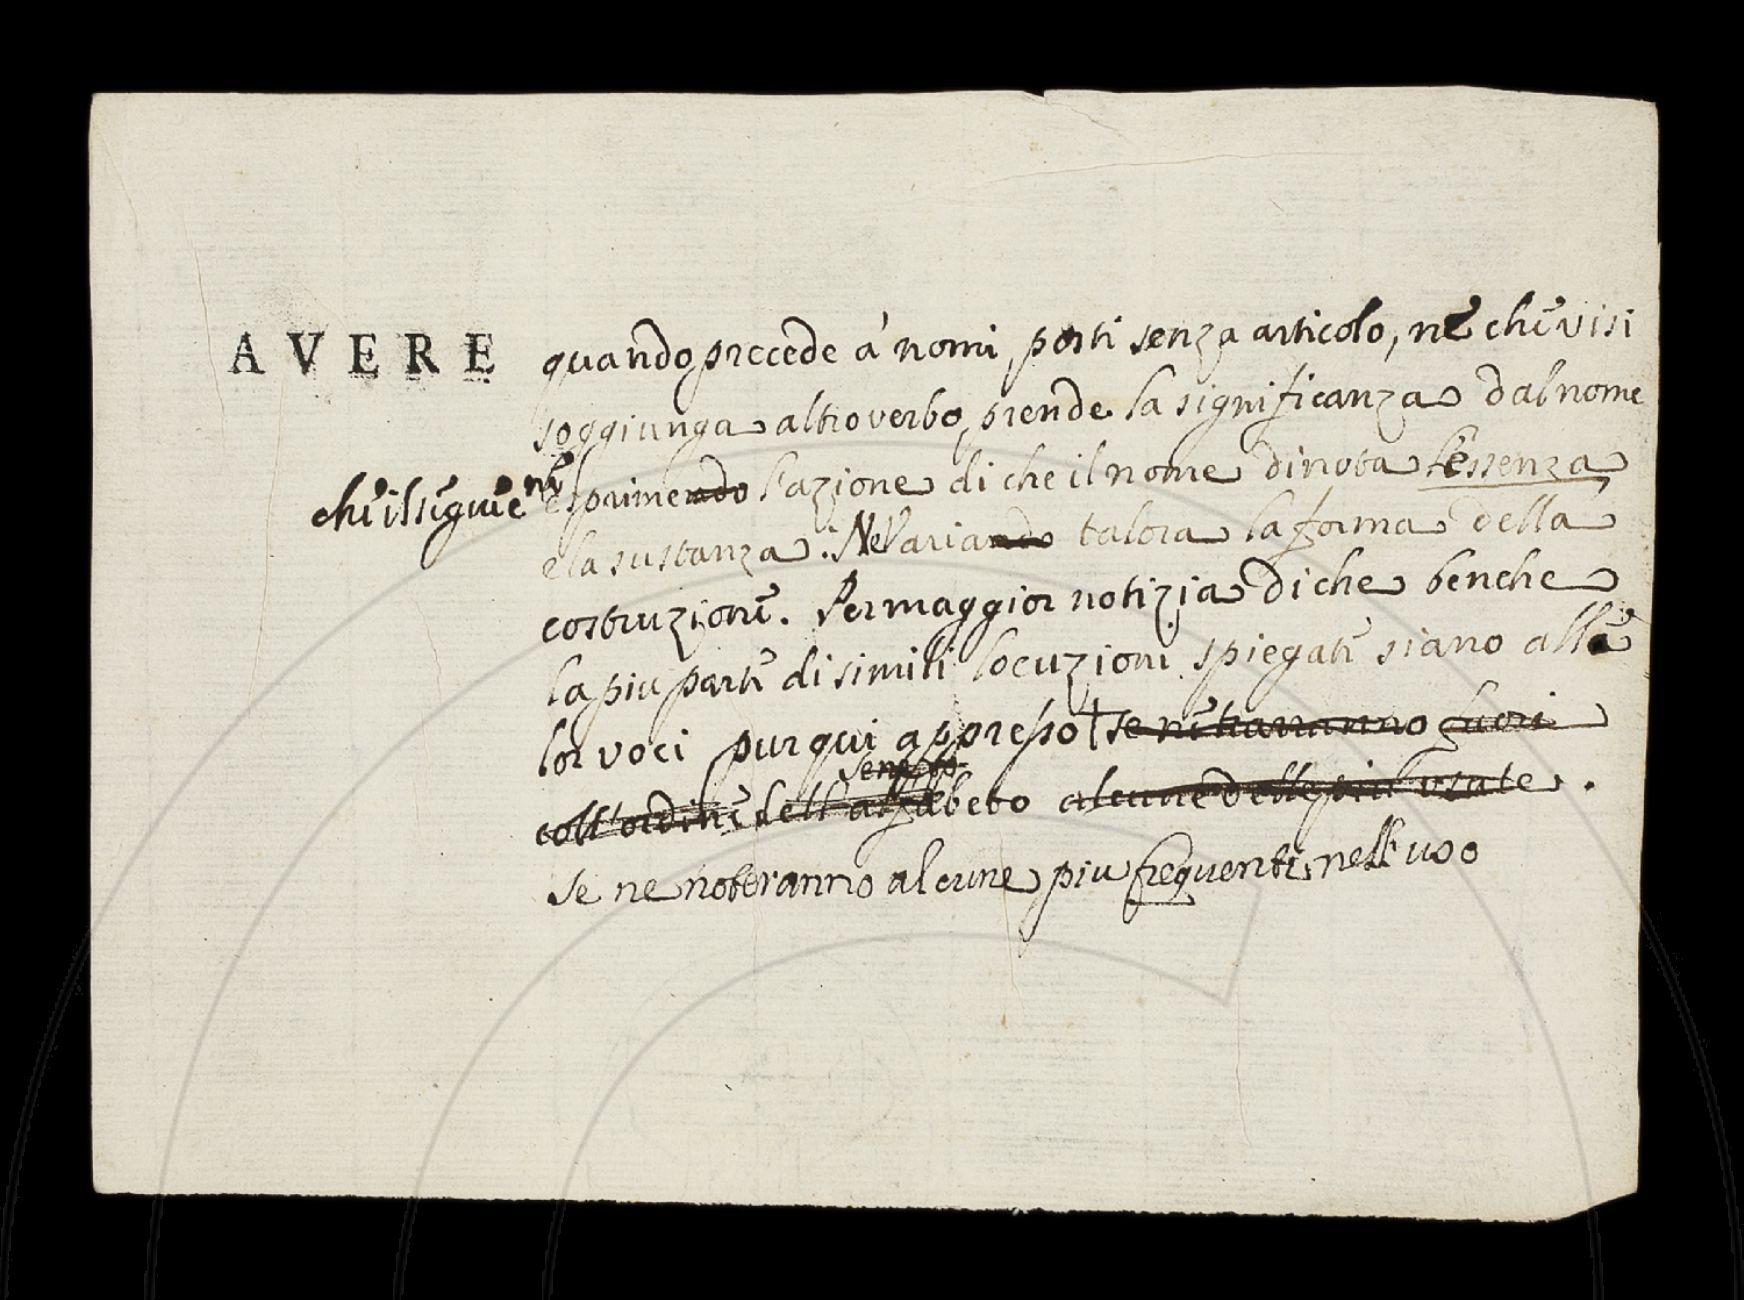 AVERE quando precede a' nomi, posti senza articolo, ne che vi si
soggiunga altro verbo, prende la significanza dal nome
che il siegue, nè esprimendo l'azione di che il nome dinota l'essenza
e la sustanza. Ne Variando talora la forma della
costruzione. Per maggior notizia di che benche
la piu parte di simili locuzioni spiegate siano alle
lor voci pur qui appresso se ne trarranno fuori
coll'ordine dell'alfabeto alcune delle più usate.
se ne noteranno alcune piu frequenti nell'uso